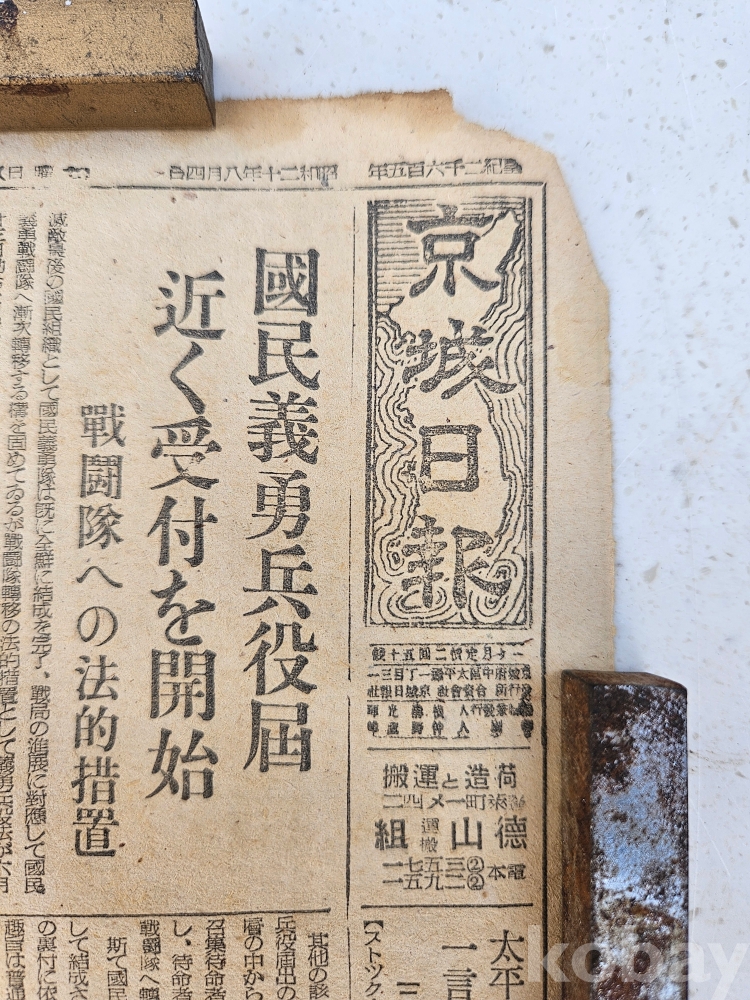 皇紀二千六百五年
昭和二十年八月四日
京城日報
一ヶ月定價二圓五十錢
荷造と運搬
德山組
運搬
電本
國民義勇兵役屆
近く受付を開始
戰鬪隊への法的措置
滅敵最後の國民組織として國民義勇隊は既に全鮮に結成を完了、戰局の進展に對應して國民
義勇戰鬪隊へ漸次轉移する構を固めてゐるが戰鬪隊轉移の法的措置として義勇兵役法が六月
太平
一言
【ストツク
其他の該
兵役屆出の
層の中から
召集待命者
し、待命者
戰鬪隊へ轉
斯て國民
して結成さ
の裏付に依
趣旨は普通
kobay